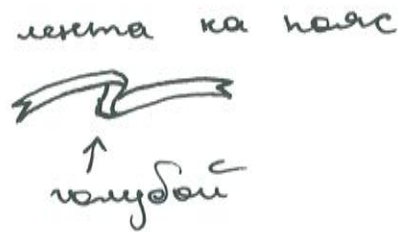 лента на пояс
голубой